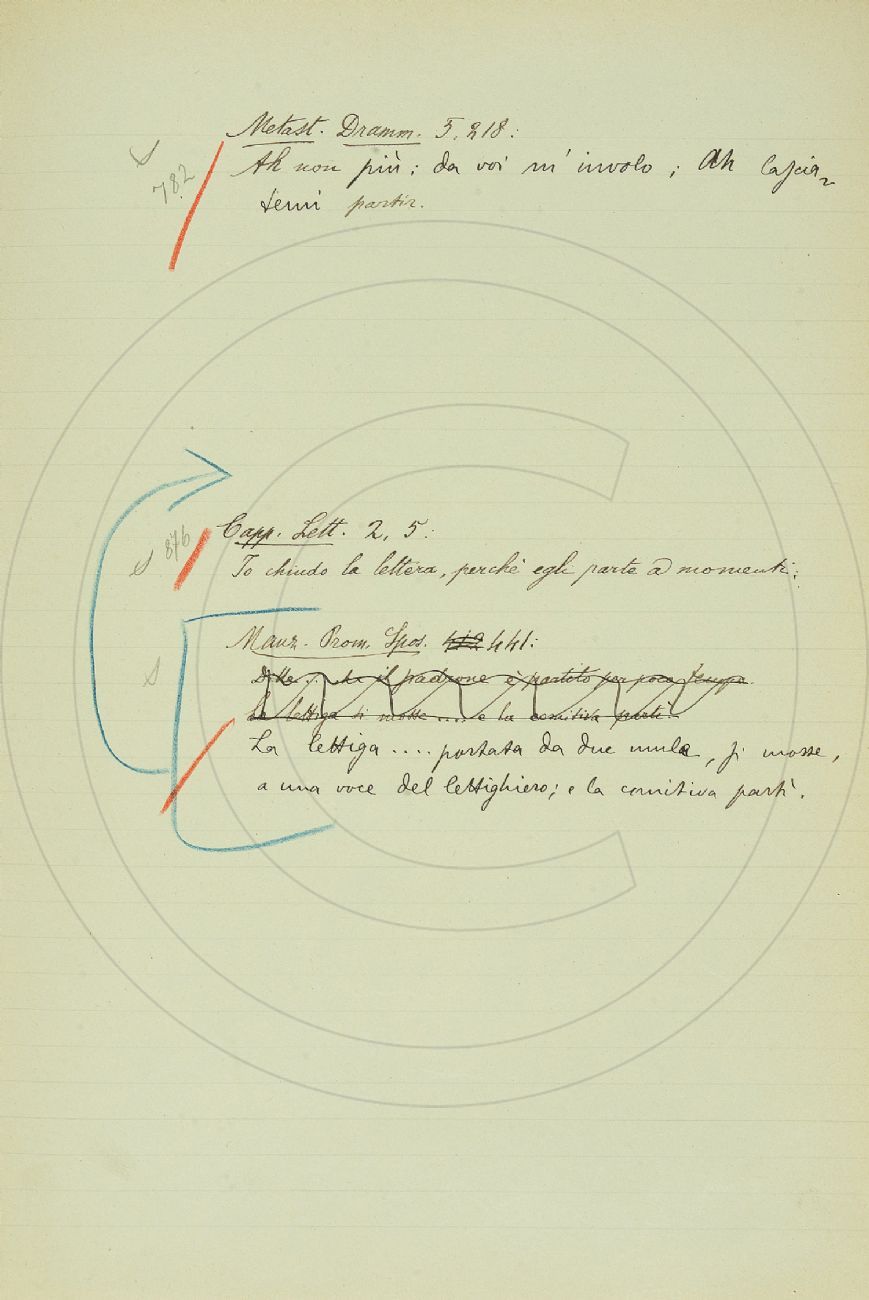 Metast. Dramm. 5. 218:
782
Ah non più; da voi m' involo; Ah lascia-
temi partir.
Capp. Lett. 2, 5:
876
Io chiudo la lettera, perchè egli parte a momenti.
Manz. Prom. Spos. 412 441:
Disse ... che il padrone è partito per poco tempo.
La lettiga si mosse .... e la comitiva partì.
La lettiga .... portata da due mule, si mosse,
a una voce del lettighiero; e la comitiva partì.